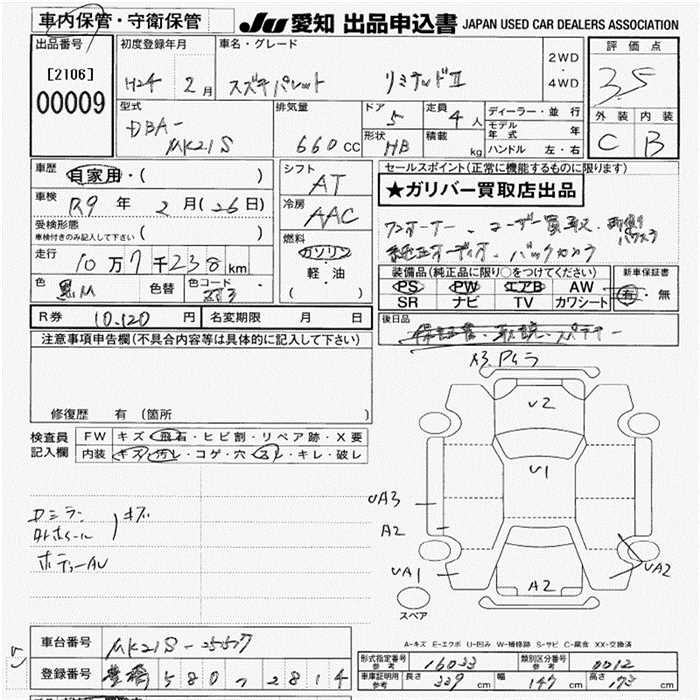 車内保管・守衛保管
JU 愛知 出品申込書 JAPAN USED CAR DEALERS ASSOCIATION
出品番号
[2106]
00009
初度登録年月
H24 2月
車名・グレード
スズキパレット リミテッドⅡ
2WD
・
4WD
評価点
3.5
外装 内装
C B
型式
DBA-
MK21S
排気量
660 CC
ドア
5
定員
4人
形状
HB
積載
kg
ディーラー・並行
モデル年式 年
ハンドル 左・右
車歴
自家用・( )
車検
R9年 2月(26日)
受検形態
車検付きのみ記入して下さい ( )
走行
10万7千238km
色
黒M
色替
色コード
ZJ3
シフト
AT
冷房
AAC
燃料
ガソリン
・
軽・油
( )
セールスポイント(正常に機能するものに限ります)
★ガリバー買取店出品
ワンオーナー、ユーザー買取、
純正オーディオ、バックカメラ
装備品(純正品に限り○をつけてください)
PS PW エアB AW
SR ナビ TV カワシート
新車保証書
有・無
R券 10,120円
名変期限 月 日
後日品
保証書、取説、スペアキー
注意事項申告欄(不具合内容等は具体的に記入して下さい)
修復歴 有 (箇所 )
検査員記入欄
FW キズ・飛石・ヒビ割・リペア跡・X要
内装 キズ・汚レ・コゲ・穴・スレ・キレ・破レ
U2
U1
UA3
A2
UA1
A2
UA2
スペア
Dミラー
タイヤホイール キズ
ボディーAU
A-キズ E-エクボ U-凹み W-補修跡 S-サビ C-腐食 XX-交換済
車台番号
MK21S-
登録番号
豊橋 580 つ 2814
形式指定番号
参考
16033
類別区分番号
参考
0012
車庫証明用
参考
長さ 339 cm 幅 147 cm 高さ 173 cm